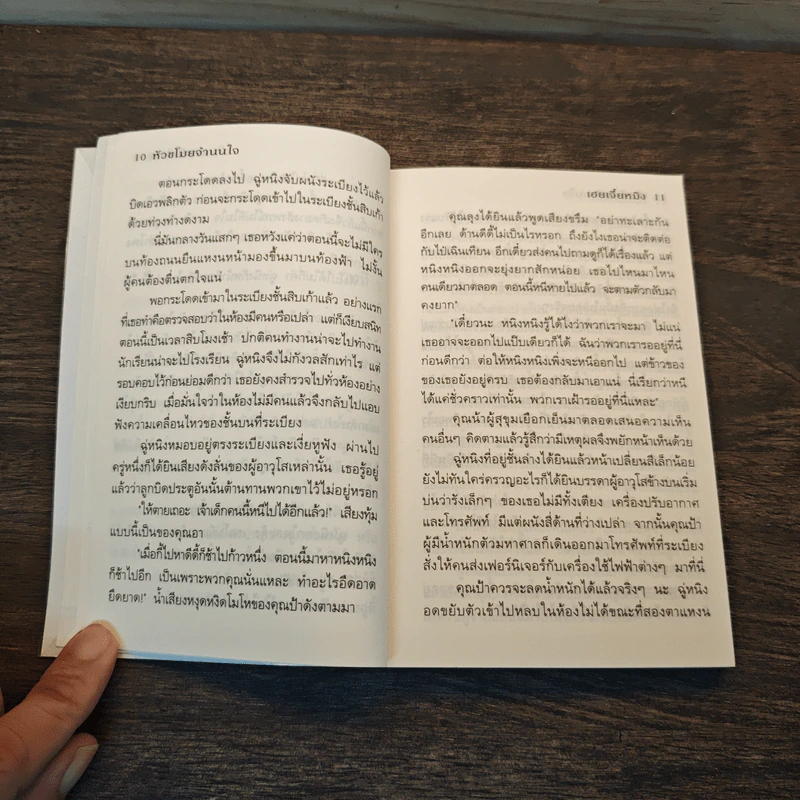 10 หัวขโมยจำนนใจ
ตอนกระโดดลงไป ฉู่หนิงจับผนังระเบียงไว้แล้ว
บิดเอวพลิกตัว ก่อนจะกระโดดเข้าไปในระเบียงชั้นสิบเก้า
ด้วยท่วงท่างดงาม
นี่มันกลางวันแสกๆ เธอหวังแค่ว่าตอนนี้จะไม่มีใคร
บนท้องถนนยืนแหงนหน้ามองขึ้นมาบนท้องฟ้า ไม่งั้น
ผู้คนต้องตื่นตกใจแน่
พอกระโดดเข้ามาในระเบียงชั้นสิบเก้าแล้ว อย่างแรก
ที่เธอทำคือตรวจสอบว่าในห้องมีคนหรือเปล่า แต่ก็เงียบสนิท
ตอนนี้เป็นเวลาสิบโมงเช้า ปกติคนทำงานน่าจะไปทำงาน
นักเรียนน่าจะไปโรงเรียน ฉู่หนิงจึงไม่กังวลสักเท่าไร แต่
รอบคอบไว้ก่อนย่อมดีกว่า เธอยังคงสำรวจไปทั่วห้องอย่าง
เงียบกริบ เมื่อมั่นใจว่าในห้องไม่มีคนแล้วจึงกลับไปแอบ
ฟังความเคลื่อนไหวของชั้นบนที่ระเบียง
ฉู่หนิงหมอบอยู่ตรงระเบียงและเงี่ยหูฟัง ผ่านไป
ครู่หนึ่งก็ได้ยินเสียงดังลั่นของผู้อาวุโสเหล่านั้น เธอรู้อยู่
แล้วว่าลูกบิดประตูอันนั้นต้านทานพวกเขาไว้ไม่อยู่หรอก
"ให้ตายเถอะ เจ้าเด็กคนนี้หนีไปได้อีกแล้ว!" เสียงทุ้ม
แบบนี้เป็นของคุณอา
"เมื่อกี้ไปหาดีดี้ก็ช้าไปก้าวหนึ่ง ตอนนี้มาหาหนิงหนิง
ก็ช้าไปอีก เป็นเพราะพวกคุณนั่นแหละ ทำอะไรอืดอาด
ยืดยาด!" น้ำเสียงหงุดหงิดโมโหของคุณป้าดังตามมา
เฮยเจี๋ยหมิง 11
คุณลุงได้ยินแล้วพูดเสียงขรึม "อย่าทะเลาะกัน
อีกเลย ด้านดีดี้ไม่เป็นไรหรอก ถึงยังไงเธอน่าจะติดต่อ
กับไป๋เฉินเทียน อีกเดี๋ยวส่งคนไปถามดูก็ได้เรื่องแล้ว แต่
หนิงหนิงออกจะยุ่งยากสักหน่อย เธอไปไหนมาไหน
คนเดียวมาตลอด ตอนนี้หนีหายไปแล้ว จะตามตัวกลับมา
คงยาก"
"เดี๋ยวนะ หนิงหนิงรู้ได้ไงว่าพวกเราจะมา ไม่แน่
เธออาจจะออกไปแป๊บเดียวก็ได้ ฉันว่าพวกเรารออยู่ที่นี่
ก่อนดีกว่า ต่อให้หนิงหนิงเพิ่งจะหนีออกไป แต่ข้าวของ
ของเธอยังอยู่ครบ เธอต้องกลับมาเอาแน่ นี่เรียกว่าหนี
ได้แค่ชั่วคราวเท่านั้น พวกเราเฝ้ารออยู่ที่นี่แหละ"
คุณน้าผู้สุขุมเยือกเย็นมาตลอดเสนอความเห็น
คนอื่นๆ คิดตามแล้วรู้สึกว่ามีเหตุผลจึงพยักหน้าเห็นด้วย
ฉู่หนิงที่อยู่ชั้นล่างได้ยินแล้วหน้าเปลี่ยนสีเล็กน้อย
ยังไม่ทันใคร่ครวญอะไรก็ได้ยินบรรดาผู้อาวุโสข้างบนเริ่ม
บ่นว่ารังเล็กๆ ของเธอไม่มีทั้งเตียง เครื่องปรับอากาศ
และโทรศัพท์ มีแต่ผนังสี่ด้านที่ว่างเปล่า จากนั้นคุณป้า
ผู้มีน้ำหนักตัวมหาศาลก็เดินออกมาโทรศัพท์ที่ระเบียง
สั่งให้คนส่งเฟอร์นิเจอร์กับเครื่องใช้ไฟฟ้าต่างๆ มาที่นี่
คุณป้าควรจะลดน้ำหนักได้แล้วจริงๆ นะ ฉู่หนิง
อดขยับตัวเข้าไปหลบในห้องไม่ได้ขณะที่สองตาแหงน